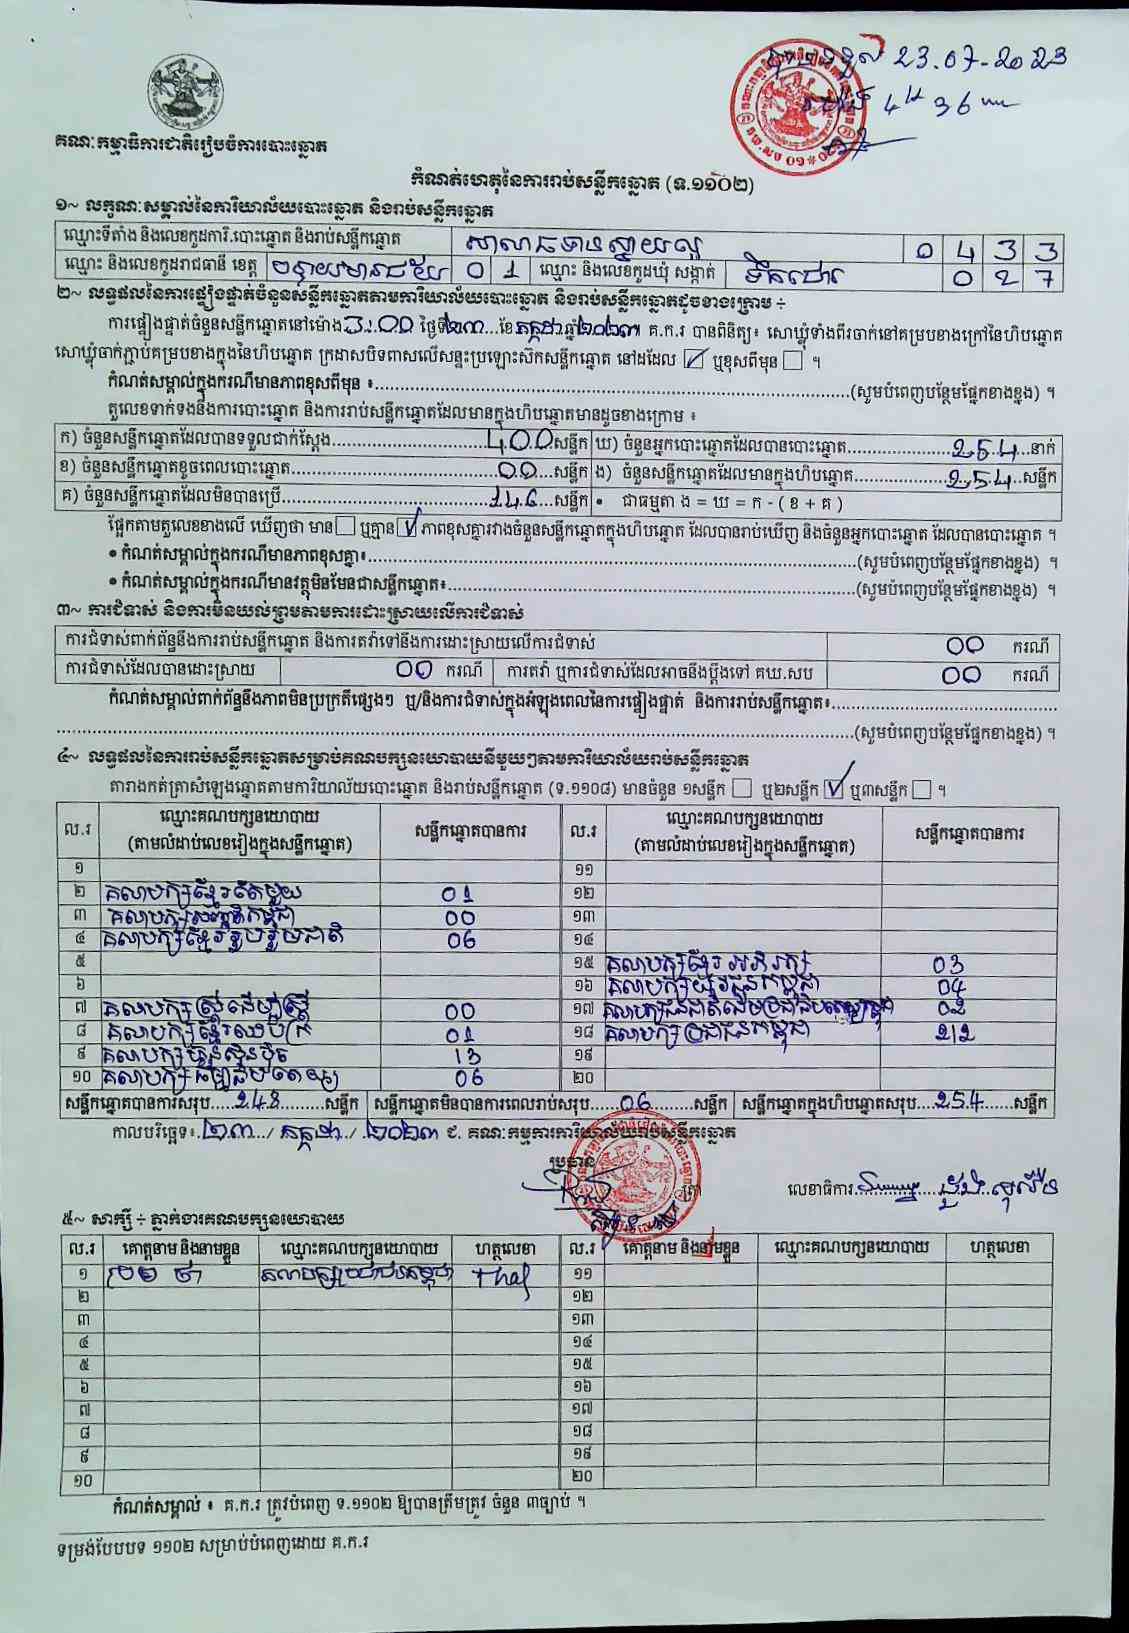 បានទទួល 23.07-2023
ម៉ោង 4H 36
គណៈកម្មាធិការជាតិរៀបចំការបោះឆ្នោត
កំណត់ហេតុនៃការរាប់សន្លឹកឆ្នោត (ទ.១១០២)
១~ លក្ខណៈសម្គាល់នៃការិយាល័យបោះឆ្នោត និងរាប់សន្លឹកឆ្នោត
ឈ្មោះទីតាំង និងលេខកូដការិ.បោះឆ្នោត និងរាប់សន្លឹកឆ្នោត សាលាធម្មទានស្វាយល្អ 0 4 3 3
ឈ្មោះ និងលេខកូដរាជធានី ខេត្ត បន្ទាយមានជ័យ 0 1 ឈ្មោះ និងលេខកូដឃុំ សង្កាត់ ទឹកជោរ 0 2 7
២~ លទ្ធផលនៃការផ្ទៀងផ្ទាត់ចំនួនសន្លឹកឆ្នោតតាមការិយាល័យបោះឆ្នោត និងរាប់សន្លឹកឆ្នោតដូចខាងក្រោម ÷
ការផ្ទៀងផ្ទាត់ចំនួនសន្លឹកឆ្នោតនៅម៉ោង 3:00 ថ្ងៃទី២៣...ខែកក្កដាឆ្នាំ២០២៣។ គ.ក.រ បានពិនិត្យ៖ សោឃ្លុំទាំងពីរចាក់នៅគម្របខាងក្រៅនៃហិបឆ្នោត
សោឃ្លុំចាក់ភ្ជាប់គម្របខាងក្នុងនៃហិបឆ្នោត ក្រដាសបិទពាសលើសន្ទះប្រឡោះស៊កសន្លឹកឆ្នោត នៅដដែល ☑ ឬខុសពីមុន ☐ ។
កំណត់សម្គាល់ក្នុងករណីមានភាពខុសពីមុន ៖..........(សូមបំពេញបន្ថែមផ្នែកខាងខ្នង) ។
តួលេខទាក់ទងនឹងការបោះឆ្នោត និងការរាប់សន្លឹកឆ្នោតដែលមានក្នុងហិបឆ្នោតមានដូចខាងក្រោម ៖
ក) ចំនួនសន្លឹកឆ្នោតដែលបានទទួលជាក់ស្តែង..........400សន្លឹក ឃ) ចំនួនអ្នកបោះឆ្នោតដែលបានបោះឆ្នោត..........254...នាក់
ខ) ចំនួនសន្លឹកឆ្នោតខូចពេលបោះឆ្នោត..........00...សន្លឹក ង) ចំនួនសន្លឹកឆ្នោតដែលមានក្នុងហិបឆ្នោត..........254...សន្លឹក
គ) ចំនួនសន្លឹកឆ្នោតដែលមិនបានប្រើ..........146...សន្លឹក • ជាធម្មតា ង = ឃ = ក - ( ខ + គ )
ផ្អែកតាមតួលេខខាងលើ ឃើញថា មាន ☐ ឬគ្មាន ☑ ភាពខុសគ្នារវាងចំនួនសន្លឹកឆ្នោតក្នុងហិបឆ្នោត ដែលបានរាប់ឃើញ និងចំនួនអ្នកបោះឆ្នោត ដែលបានបោះឆ្នោត ។
• កំណត់សម្គាល់ក្នុងករណីមានភាពខុសគ្នា៖..........(សូមបំពេញបន្ថែមផ្នែកខាងខ្នង) ។
• កំណត់សម្គាល់ក្នុងករណីមានវត្ថុមិនមែនជាសន្លឹកឆ្នោត៖..........(សូមបំពេញបន្ថែមផ្នែកខាងខ្នង) ។
៣~ ការជំទាស់ និងការមិនយល់ព្រមតាមការដោះស្រាយលើការជំទាស់
ការជំទាស់ពាក់ព័ន្ធនឹងការរាប់សន្លឹកឆ្នោត និងការតវ៉ាទៅនឹងការដោះស្រាយលើការជំទាស់ 00 ករណី
ការជំទាស់ដែលបានដោះស្រាយ 00 ករណី ការតវ៉ា ឬការជំទាស់ដែលអាចនឹងប្តឹងទៅ គឃ.សប 00 ករណី
កំណត់សម្គាល់ពាក់ព័ន្ធនឹងភាពមិនប្រក្រតីផ្សេងៗ ឬ/និងការជំទាស់ក្នុងអំឡុងពេលនៃការផ្ទៀងផ្ទាត់ និងការរាប់សន្លឹកឆ្នោត៖..........
..........(សូមបំពេញបន្ថែមផ្នែកខាងខ្នង) ។
៤~ លទ្ធផលនៃការរាប់សន្លឹកឆ្នោតសម្រាប់គណបក្សនយោបាយនីមួយៗតាមការិយាល័យរាប់សន្លឹកឆ្នោត
តារាងកត់ត្រាសំឡេងឆ្នោតតាមការិយាល័យបោះឆ្នោត និងរាប់សន្លឹកឆ្នោត (ទ.១១០៨) មានចំនួន ១សន្លឹក ☐ ឬ២សន្លឹក ☑ ឬ៣សន្លឹក ☐ ។
ល.រ ឈ្មោះគណបក្សនយោបាយ (តាមលំដាប់លេខរៀងក្នុងសន្លឹកឆ្នោត) សន្លឹកឆ្នោតបានការ ល.រ ឈ្មោះគណបក្សនយោបាយ (តាមលំដាប់លេខរៀងក្នុងសន្លឹកឆ្នោត) សន្លឹកឆ្នោតបានការ
១ ១១
២ គណបក្សខ្មែរតែមួយ 01 ១២
៣ គណបក្សសញ្ជាតិកម្ពុជា 00 ១៣
៤ គណបក្សខ្មែររួបរួមជាតិ 06 ១៤
៥ ១៥ គណបក្សខ្មែរអភិរក្ស 03
៦ ១៦ គណបក្សយុវជនកម្ពុជា 04
៧ គណបក្សស្ត្រីដើម្បីស្ត្រី 00 ១៧ គណបក្សជនជាតិដើមប្រជាធិបតេយ្យកម្ពុជា 02
៨ គណបក្សខ្មែរឈប់ក្រ 01 ១៨ គណបក្សប្រជាជនកម្ពុជា 212
៩ គណបក្សហ្វ៊ុនស៊ិនប៉ិច 13 ១៩
១០ គណបក្សធម្មាធិបតេយ្យ 06 ២០
សន្លឹកឆ្នោតបានការសរុប....248.......សន្លឹក សន្លឹកឆ្នោតមិនបានការពេលរាប់សរុប....06.......សន្លឹក សន្លឹកឆ្នោតក្នុងហិបឆ្នោតសរុប....254......សន្លឹក
កាលបរិច្ឆេទ៖ ២៣ / កក្កដា / ២០២៣ ៩. គណៈកម្មការការិយាល័យរាប់សន្លឹកឆ្នោត
ប្រធាន
លេខាធិការ
៥~ សាក្សី ÷ ភ្នាក់ងារគណបក្សនយោបាយ
ល.រ គោត្តនាម និងនាមខ្លួន ឈ្មោះគណបក្សនយោបាយ ហត្ថលេខា ល.រ គោត្តនាម និងនាមខ្លួន ឈ្មោះគណបក្សនយោបាយ ហត្ថលេខា
១ គណបក្សប្រជាជនកម្ពុជា ១១
២ ១២
៣ ១៣
៤ ១៤
៥ ១៥
៦ ១៦
៧ ១៧
៨ ១៨
៩ ១៩
១០ ២០
កំណត់សម្គាល់ ៖ គ.ក.រ ត្រូវបំពេញ ទ.១១០២ ឱ្យបានត្រឹមត្រូវ ចំនួន ៣ច្បាប់ ។
ទម្រង់បែបបទ ១១០២ សម្រាប់បំពេញដោយ គ.ក.រ